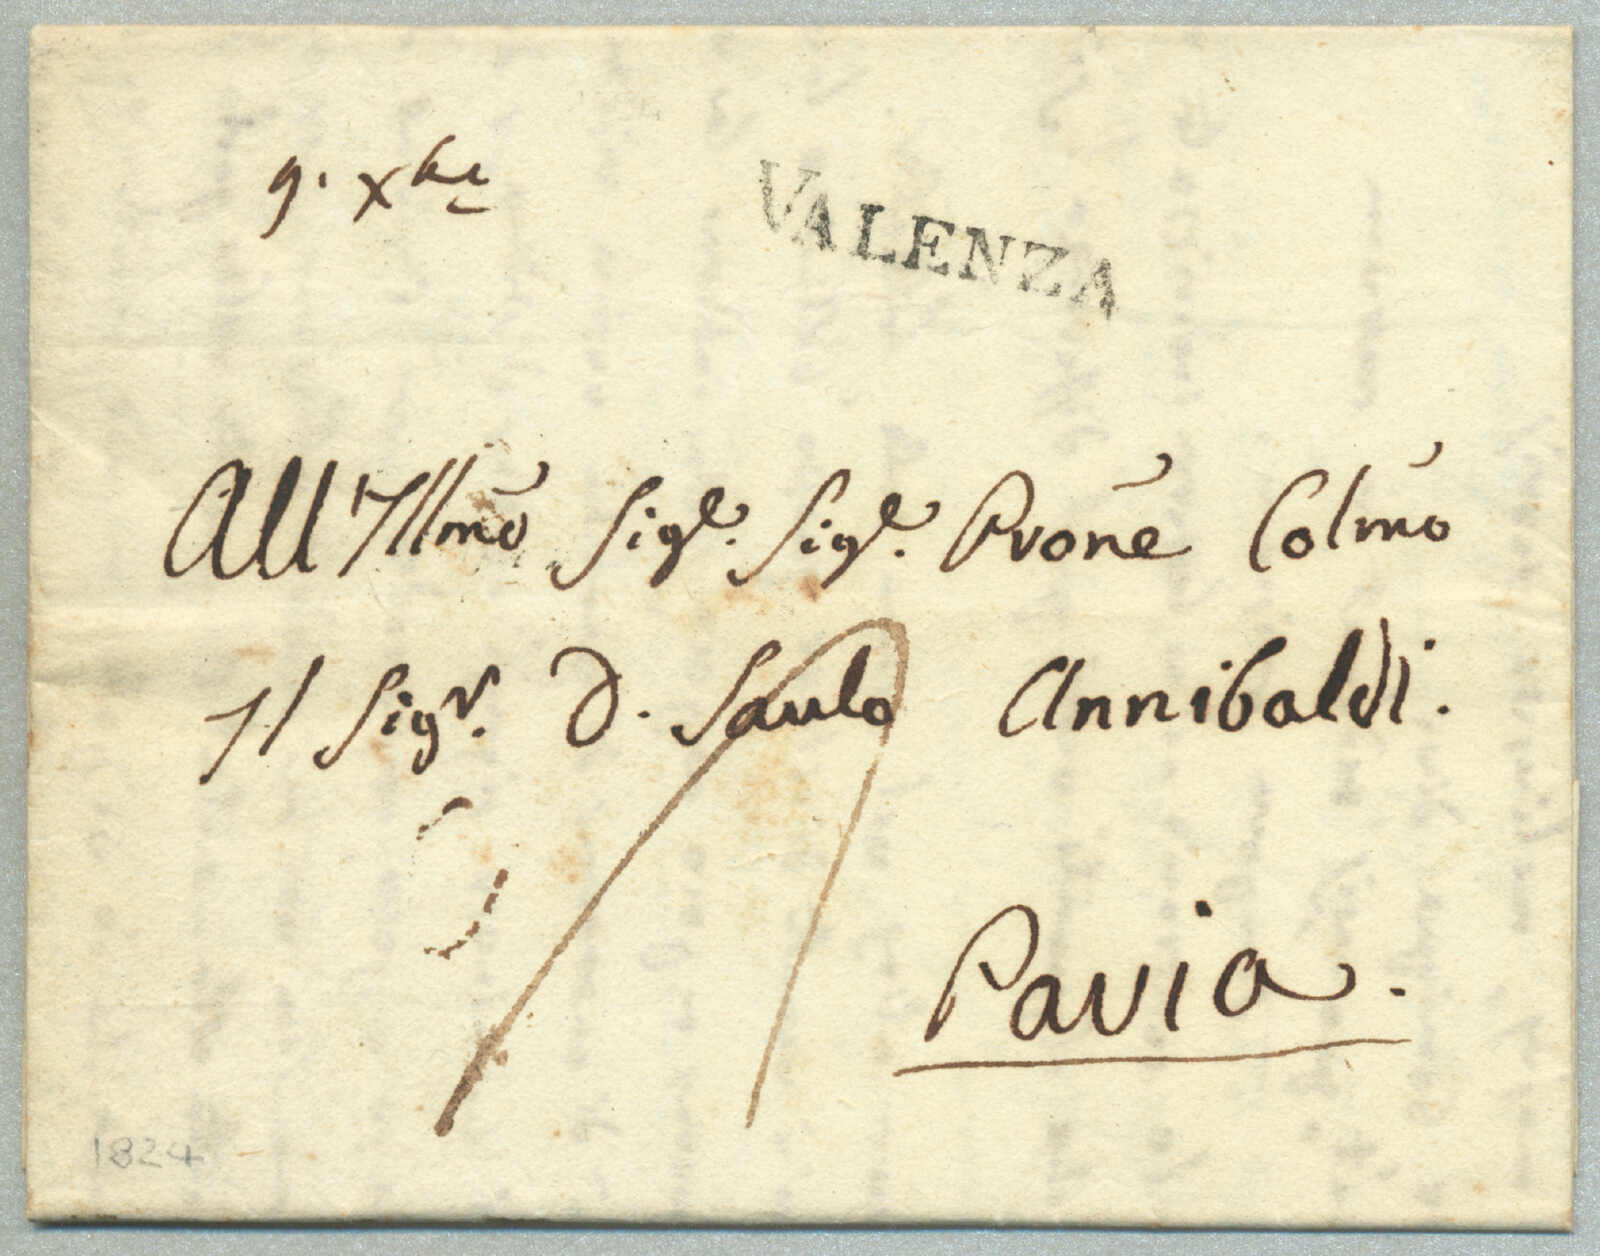 9. Xbre
VALENZA
All'Illmo Sigr. Sigr. Prone Colmo
Il Sigr. D. Saulo Annibaldi.
Pavia.
1824